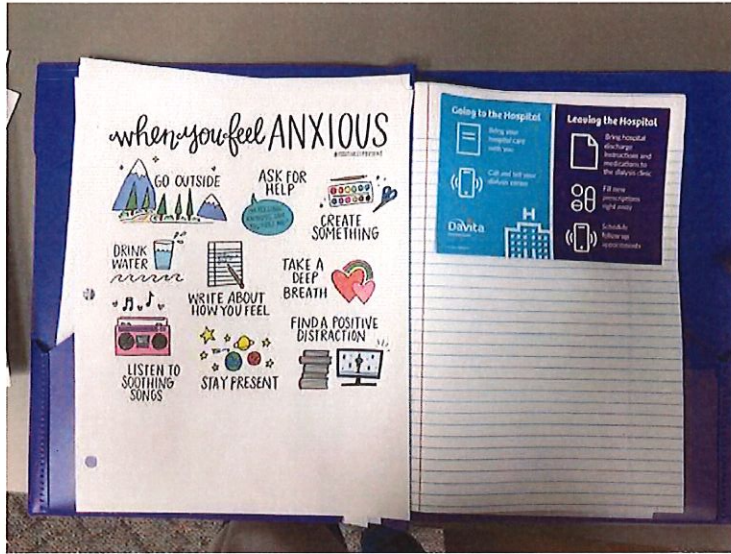 when you feel ANXIOUS
GO OUTSIDE
ASK FOR
HELP
CREATE
SOMETHING
DRINK
WATER
WRITE ABOUT
HOW YOU FEEL
TAKE A
DEEP
BREATH
LISTEN TO
SOOTHING
SONGS
STAY PRESENT
FIND A POSITIVE
DISTRACTION
Going to the Hospital
Bring your
hospital care
with you
Call and tell your
dialysis center
DaVita
H
Leaving the Hospital
Bring hospital
discharge
instructions and
medications to
the dialysis clinic
Fill new
prescriptions
right away
Schedule
follow-up
appointments